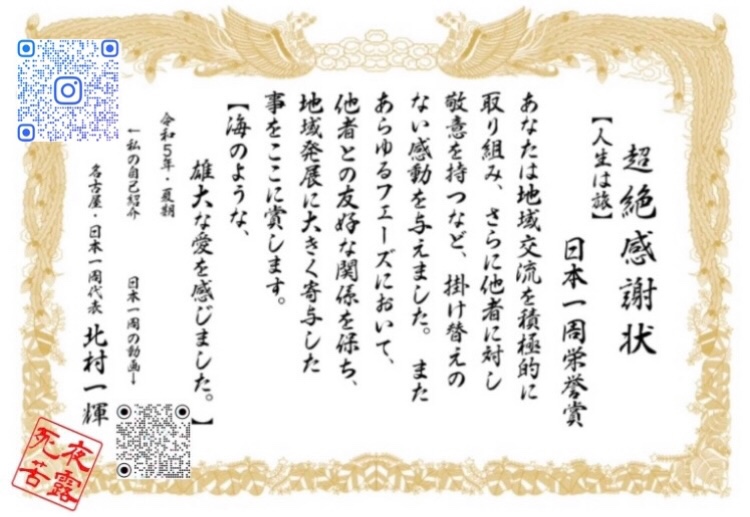 超絶感謝状
【人生は旅】
日本一周栄誉賞
あなたは地域交流を積極的に
取り組み、さらに他者に対し
敬意を持つなど、掛け替えの
ない感動を与えました。 また
あらゆるフェーズにおいて、
他者との友好な関係を保ち、
地域発展に大きく寄与した
事をここに賞します。
【海のような、
雄大な愛を感じました。】
令和5年・夏期
日本一周の動画↓
←私の自己紹介
名古屋・日本一周代表 北村一輝
夜露
死苦